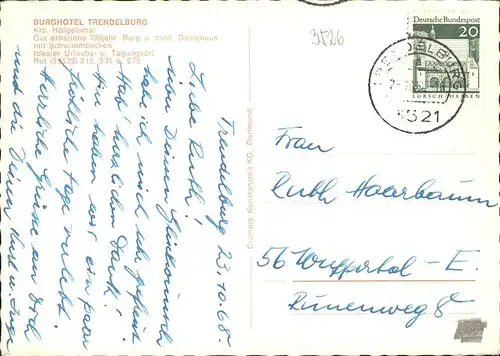 BURGHOTEL TRENDELBURG
Krs. Hofgeismar
Gut erhaltene 700jähr. Burg u. mod. Gästehaus
mit Schwimmbecken
Idealer Urlaubs- u. Tagungsort
Ruf (05675) 312, 331 u. 275
Trendelburg 23.10.68.
Liebe Ruth!
habe ich mich sehr gefreut.
Hab' herzlichen Dank!
Hier haben wir ein paar
fröhliche Tage verlebt.
Herzliche Grüße an Dich
und die Deinen
Cramers Kunstanstalt KG, Dortmund
3526
Deutsche Bundespost
20
LORSCH / HESSEN
TRENDELBURG
3521
Frau
Ruth Haarbaum
56 Wuppertal - E.
Dünenweg 8